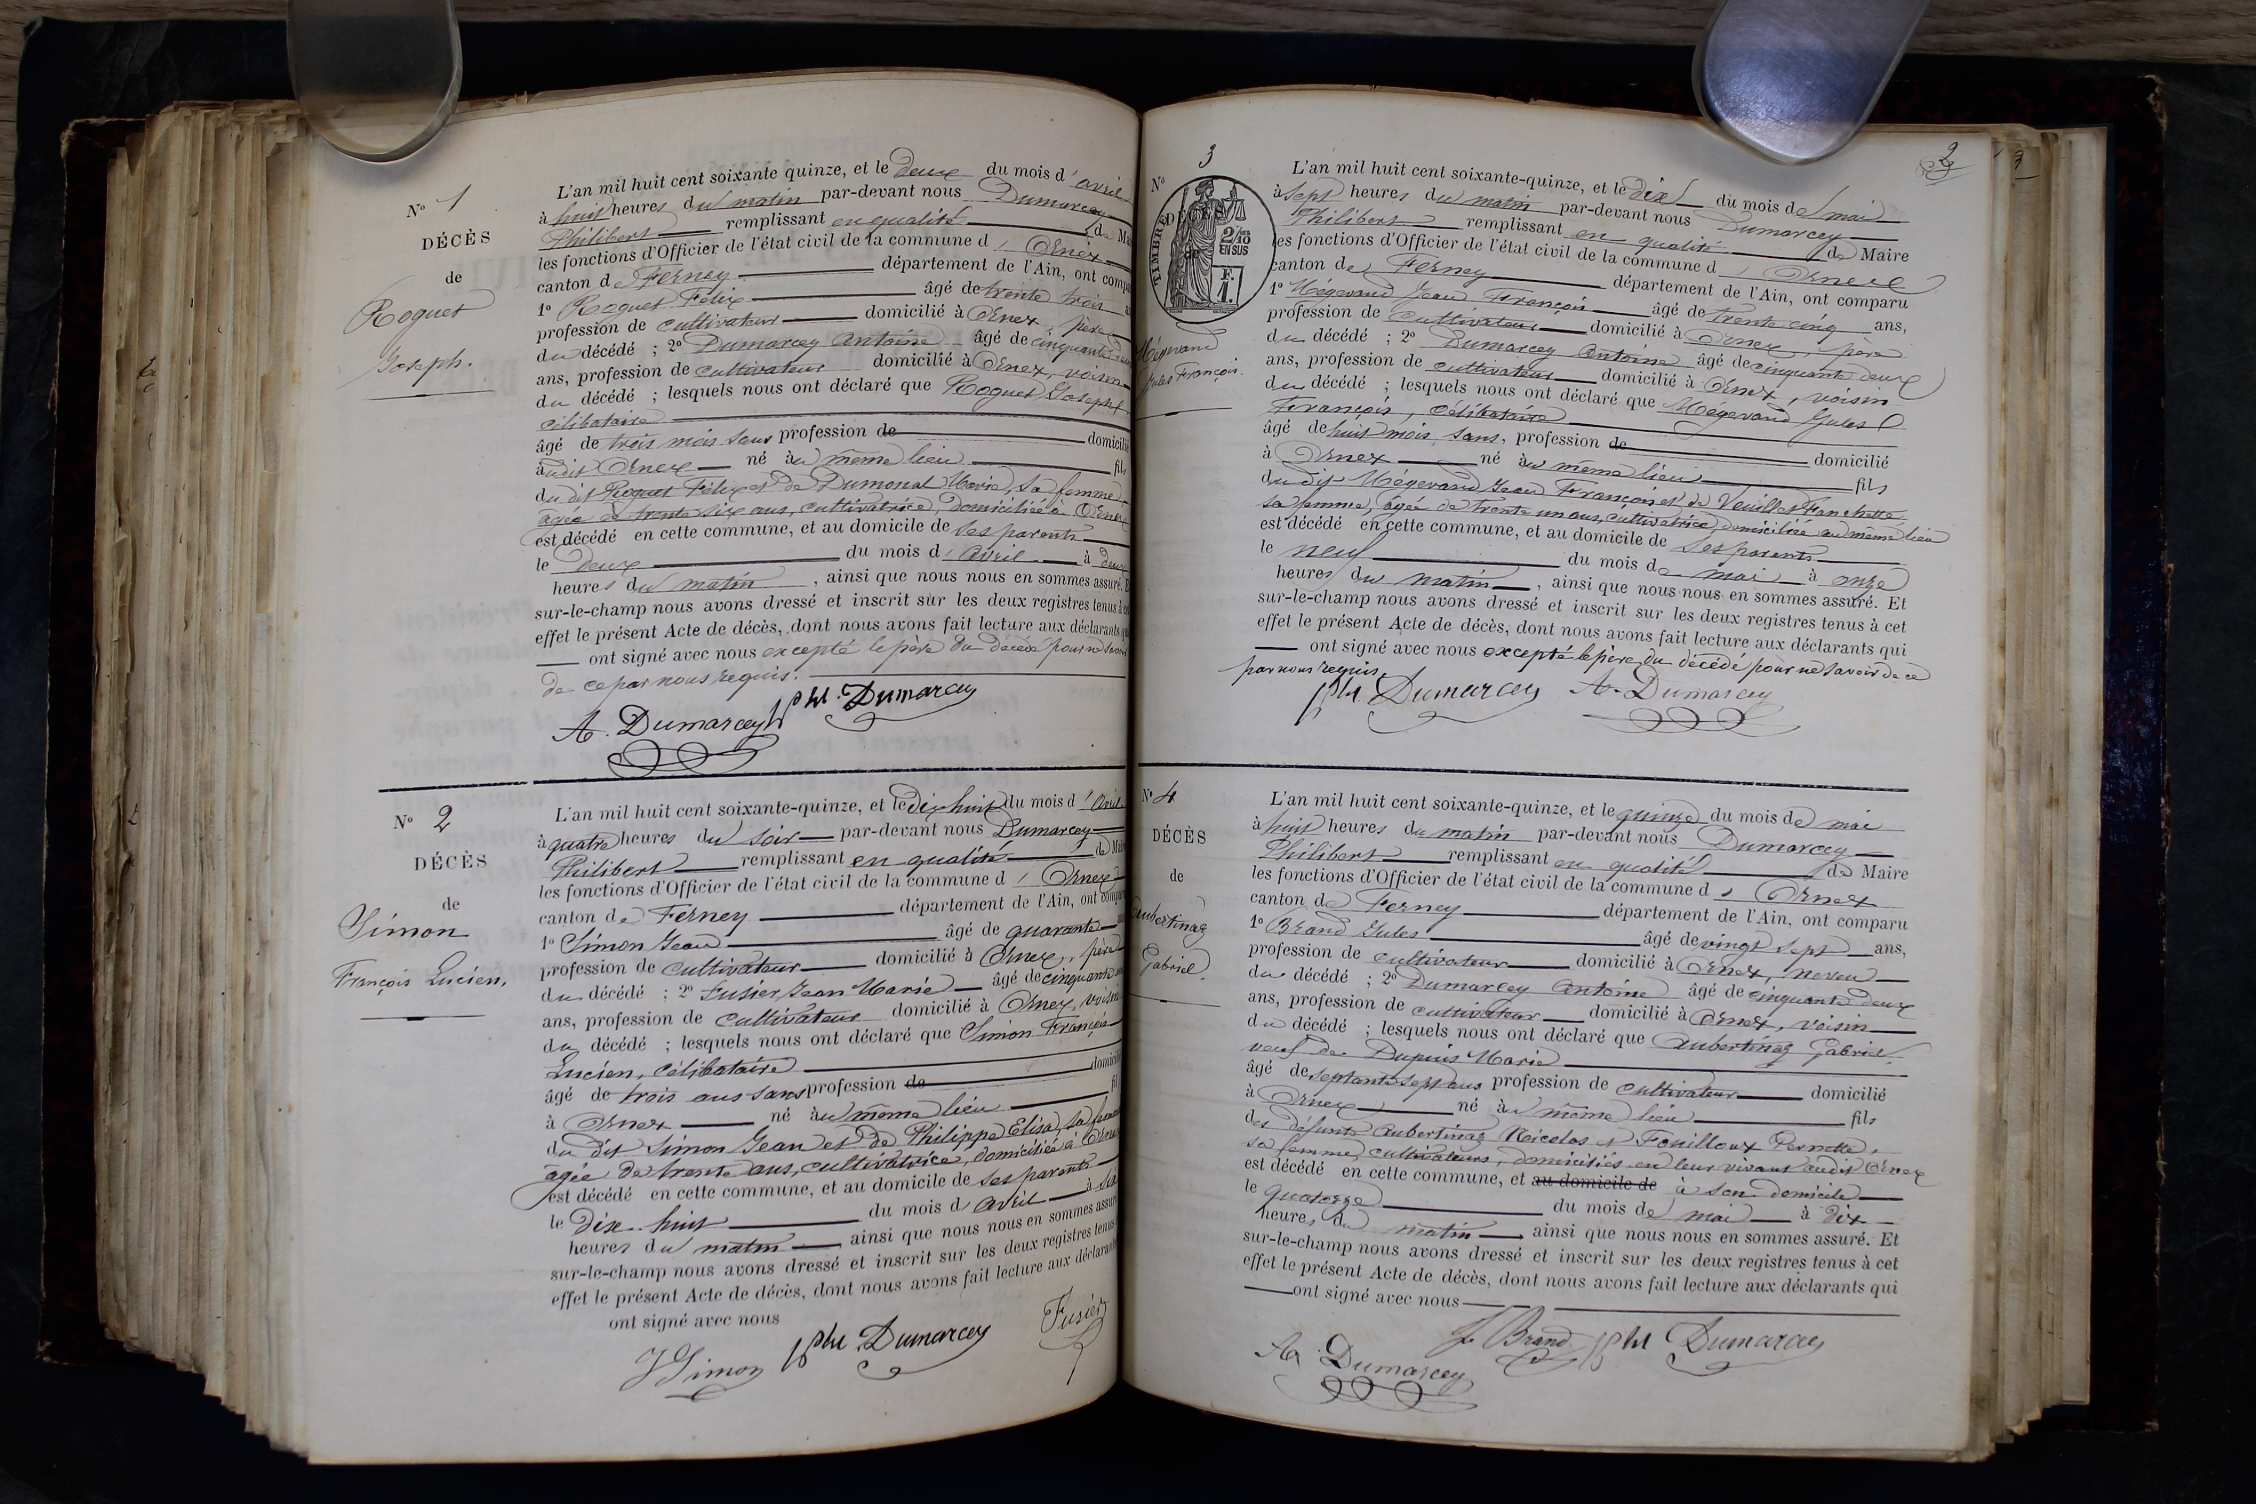 N° 1
DÉCÈS
de
Roguet
Joseph.
L'an mil huit cent soixante quinze, et le deux du mois d'avril
à huit heures du matin par-devant nous Dumarcey
Philibert remplissant en qualité de Mai
les fonctions d'Officier de l'état civil de la commune d'Ornex
canton de Ferney département de l'Ain, ont compa
1° Roguet Félix âgé de trente trois
profession de cultivateur domicilié à Ornex, père
du décédé ; 2° Dumarcey Antoine âgé de cinquante
ans, profession de cultivateur domicilié à Ornex, voisin
du décédé ; lesquels nous ont déclaré que Roguet Joseph
célibataire
âgé de trois mois sans profession de domicilié
à udit Ornex né au même lieu fils
du dit Roguet Félix et de Dumonal Marie, sa femme,
agée de trente six ans, cultivatrice, domiciliée à Ornex
est décédé en cette commune, et au domicile de ses parents
le deux du mois d'avril à deux
heures du matin, ainsi que nous nous en sommes assuré. E
sur-le-champ nous avons dressé et inscrit sur les deux registres tenus à
effet le présent Acte de décès, dont nous avons fait lecture aux déclarants qui
ont signé avec nous excepté le père du décédé pour ne savoir
de ce par nous requis.
A. Dumarcey Phl. Dumarcey
N° 2
DÉCÈS
de
Simon
François Lucien.
L'an mil huit cent soixante-quinze, et le dix huit du mois d'avril
à quatre heures du soir par-devant nous Dumarcey
Philibert remplissant en qualité de Mai
les fonctions d'Officier de l'état civil de la commune d'Ornex
canton de Ferney département de l'Ain, ont compar
1° Simon Jean âgé de quarante
profession de cultivateur domicilié à Ornex, père
du décédé ; 2° Fusier Jean Marie âgé de cinquante
ans, profession de cultivateur domicilié à Ornex, voisin
du décédé ; lesquels nous ont déclaré que Simon François
Lucien, célibataire
âgé de trois ans sans profession de domicilié
à Ornex né au même lieu fil
du dit Simon Jean et de Philippe Elisa, sa femme
agée de trente ans, cultivatrice, domiciliée à Ornex
est décédé en cette commune, et au domicile de ses parents
le dix-huit du mois d'avril à six
heures du matin ainsi que nous nous en sommes assuré
sur-le-champ nous avons dressé et inscrit sur les deux registres tenus
effet le présent Acte de décès, dont nous avons fait lecture aux déclarants
ont signé avec nous
J Simon Phl. Dumarcey Fusier
2
N° 3
DÉCÈS
de
TIMBRE
2/10
EN SUS
F.
1.
Mégevand
Jules François.
L'an mil huit cent soixante-quinze, et le dix du mois de mai
à sept heures du matin par-devant nous Dumarcey
Philibert remplissant en qualité de Maire
les fonctions d'Officier de l'état civil de la commune d'Ornex
canton de Ferney département de l'Ain, ont comparu
1° Mégevand Jean François âgé de trente cinq ans,
profession de cultivateur domicilié à Ornex, père
du décédé ; 2° Dumarcey Antoine âgé de cinquante deux
ans, profession de cultivateur domicilié à Ornex, voisin
du décédé ; lesquels nous ont déclaré que Mégevand Jules
François, célibataire
âgé de huit mois, sans, profession de domicilié
à Ornex né au même lieu fils
du dit Mégevand Jean François et de Veuillet Fanchette
sa femme, âgée de trente un ans, cultivatrice, domiciliée au même lieu
est décédé en cette commune, et au domicile de ses parents
le neuf du mois de mai à onze
heures du matin, ainsi que nous nous en sommes assuré. Et
sur-le-champ nous avons dressé et inscrit sur les deux registres tenus à cet
effet le présent Acte de décès, dont nous avons fait lecture aux déclarants qui
ont signé avec nous excepté le père du décédé pour ne savoir de ce
par nous requis.
Phl. Dumarcey A. Dumarcey
N° 4
DÉCÈS
de
Aubertinaz
Gabriel.
L'an mil huit cent soixante-quinze, et le quinze du mois de mai
à huit heures du matin par-devant nous Dumarcey
Philibert remplissant en qualité de Maire
les fonctions d'Officier de l'état civil de la commune d'Ornex
canton de Ferney département de l'Ain, ont comparu
1° Brand Jules âgé de vingt sept ans,
profession de cultivateur domicilié à Ornex, neveu
du décédé ; 2° Dumarcey Antoine âgé de cinquante deux
ans, profession de cultivateur domicilié à Ornex, voisin
du décédé ; lesquels nous ont déclaré que Aubertinaz Gabriel
veuf de Dupuis Marie
âgé de septante sept ans profession de cultivateur domicilié
à Ornex né au même lieu fils
des défunts Aubertinaz Nicolas et Fouilloux Pernette,
sa femme, cultivateurs, domiciliés en leur vivant audit Ornex
est décédé en cette commune, et au domicile de à son domicile
le quatorze du mois de mai à dix
heures du matin ainsi que nous nous en sommes assuré. Et
sur-le-champ nous avons dressé et inscrit sur les deux registres tenus à cet
effet le présent Acte de décès, dont nous avons fait lecture aux déclarants qui
ont signé avec nous
A. Dumarcey J. Brand Phl Dumarcey